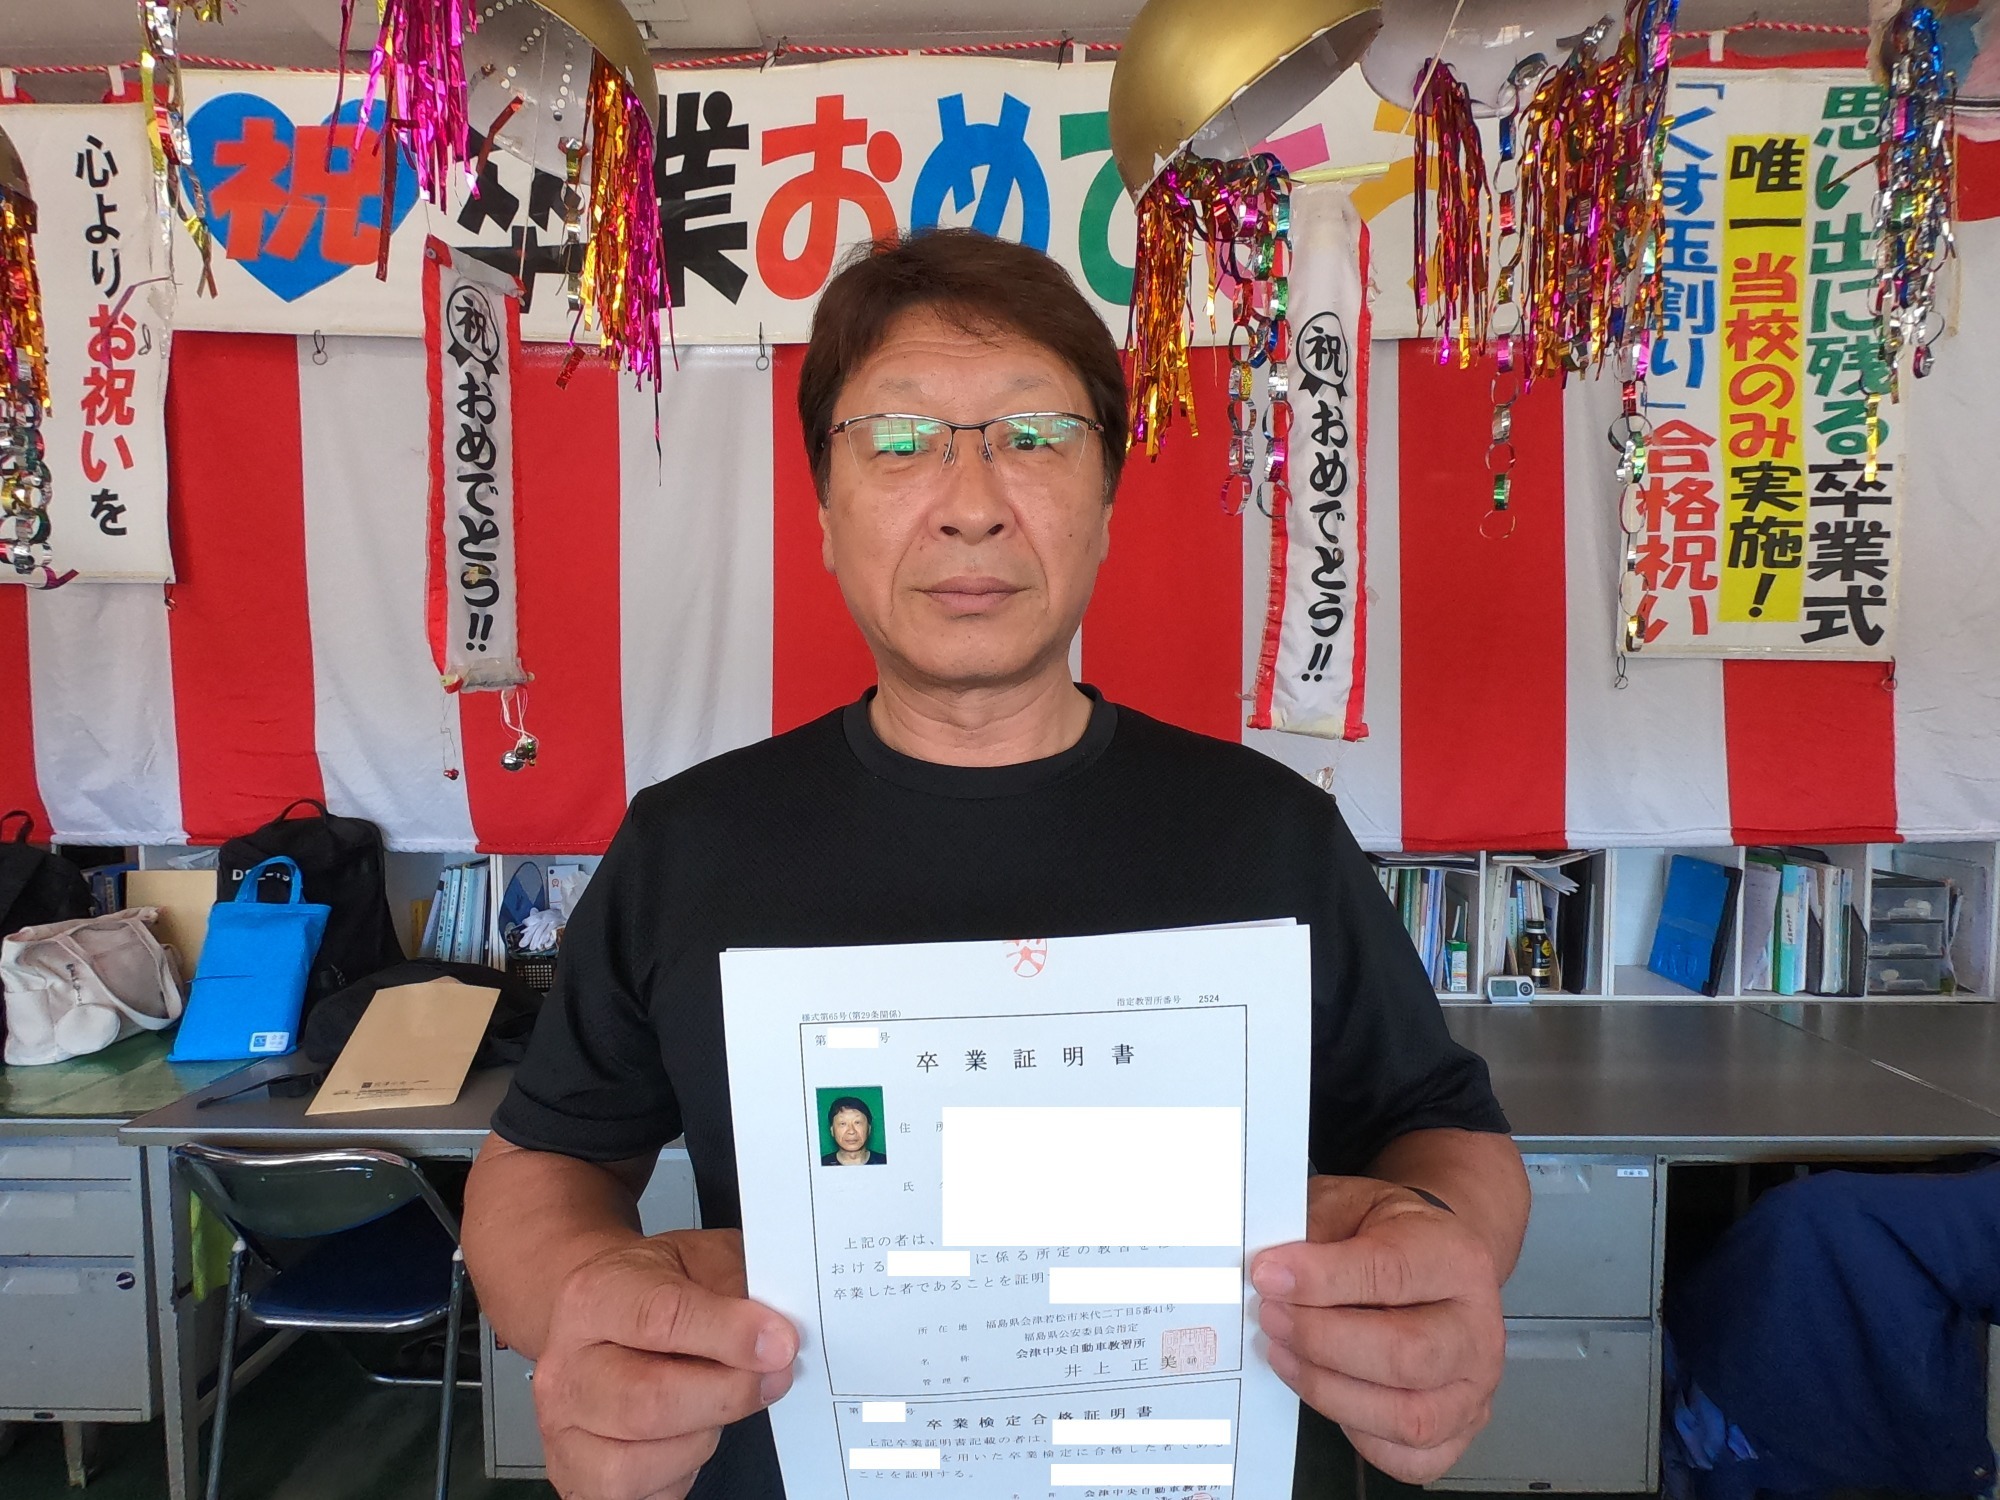 心よりお祝いを
祝 卒業おめでとう
祝 おめでとう!!
祝 おめでとう!!
思い出に残る卒業式
唯一当校のみ実施!
「くす玉割り」合格祝い
指定教習所番号 2524
様式第65号(第29条関係)
第 号
卒業証明書
住 所
氏
上記の者は、
おける に係る所定の教習を
卒業した者であることを証明
所在地 福島県会津若松市米代二丁目5番41号
福島県公安委員会指定
名称 会津中央自動車教習所
管理者 井上正美
第 号
卒業検定合格証明書
上記卒業証明書記載の者は、
を用いた卒業検定に合格した者である
ことを証明する。
名称 会津中央自動車教習所